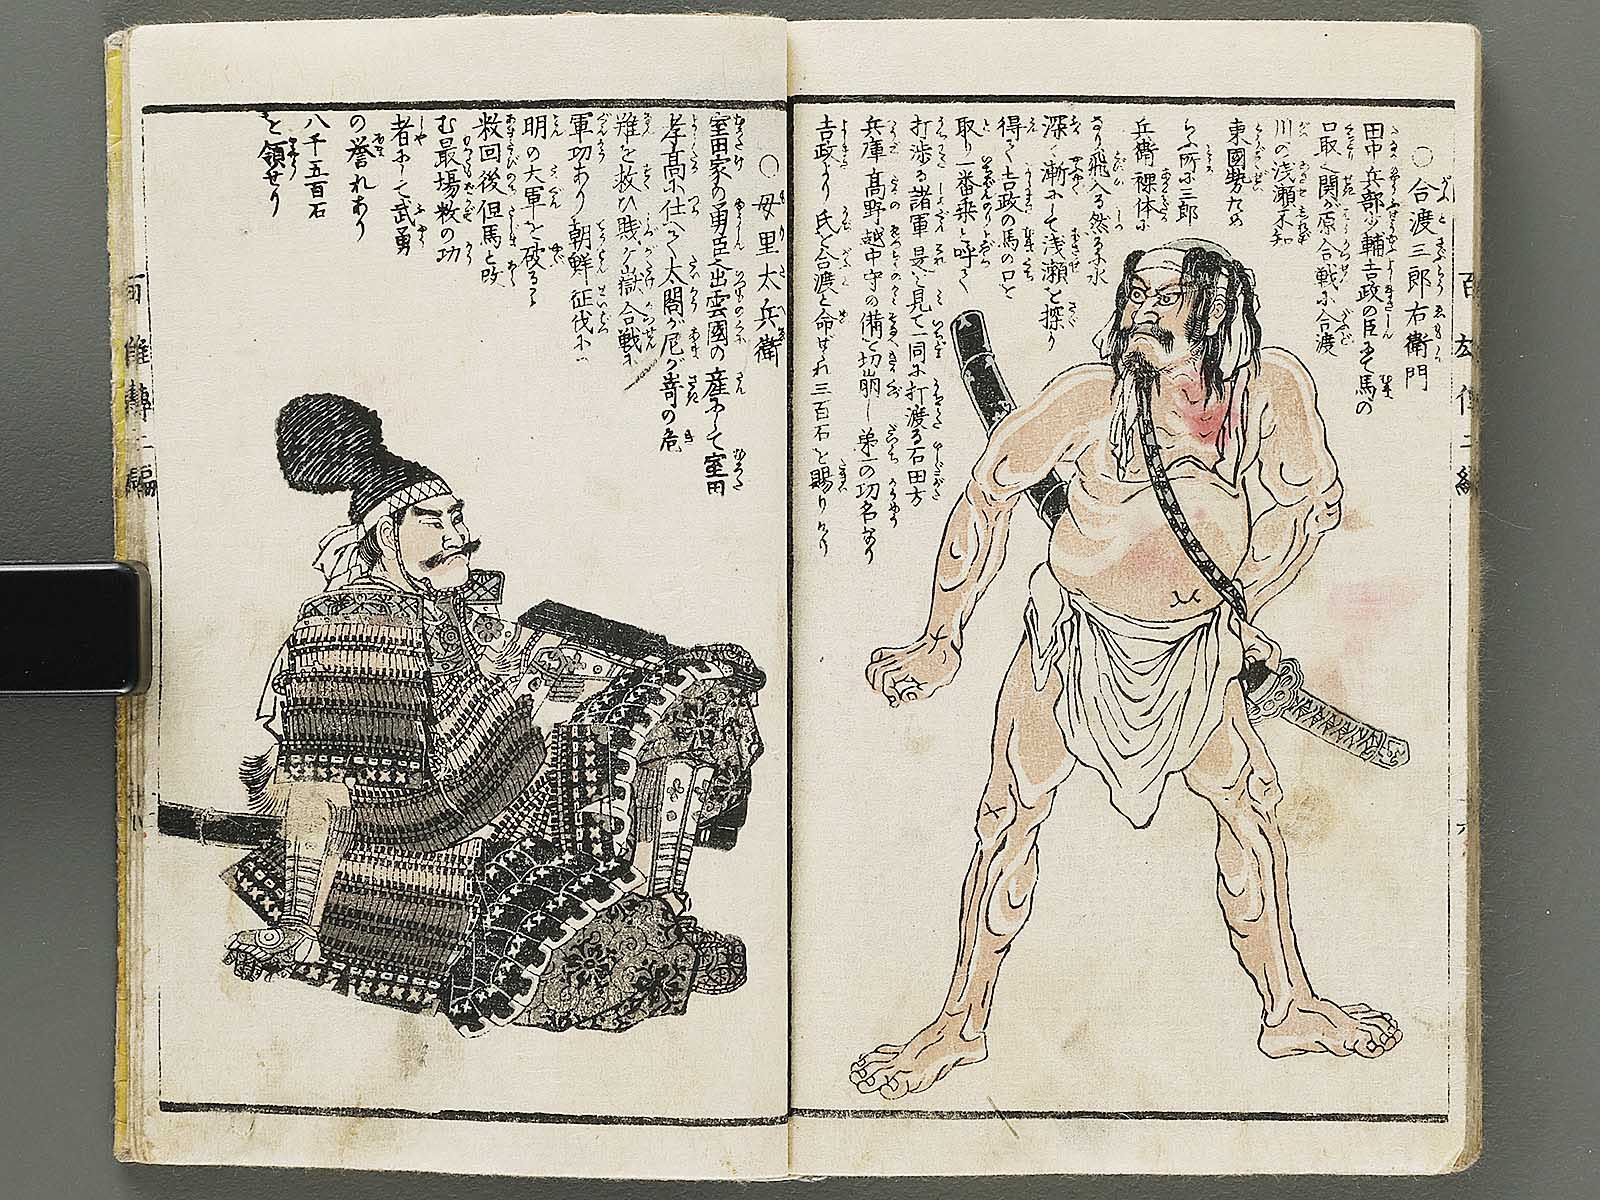 ○合渡三郎右衛門
田中兵部少輔吉政の臣にて馬の
口取也関が原合戦に合渡
川の浅瀬不知
東國勢ため
らふ所に三郎
兵衛裸体に
なり飛入る然るに水
深く漸にして浅瀬を探り
得て吉政の馬の口を
取り一番乗と呼て
打渉る諸軍是を見て一同に打渡る石田方
兵庫高野越中守の備を切崩し第一の功名なり
吉政より氏を合渡と命ぜられ三百石を賜りけり
○母里太兵衛
室田家の勇臣也出雲國の産にて室田
孝高に仕へて太閤が尼が嵜の危
難を救ひ賤ヶ嶽合戦に
軍功あり朝鮮征伐に
明の大軍を破る
救回後但馬と改
む最場数の功
者にて武勇
の誉れあり
八千五百石
を領せり
百雄傳二編
百雄傳二編
六